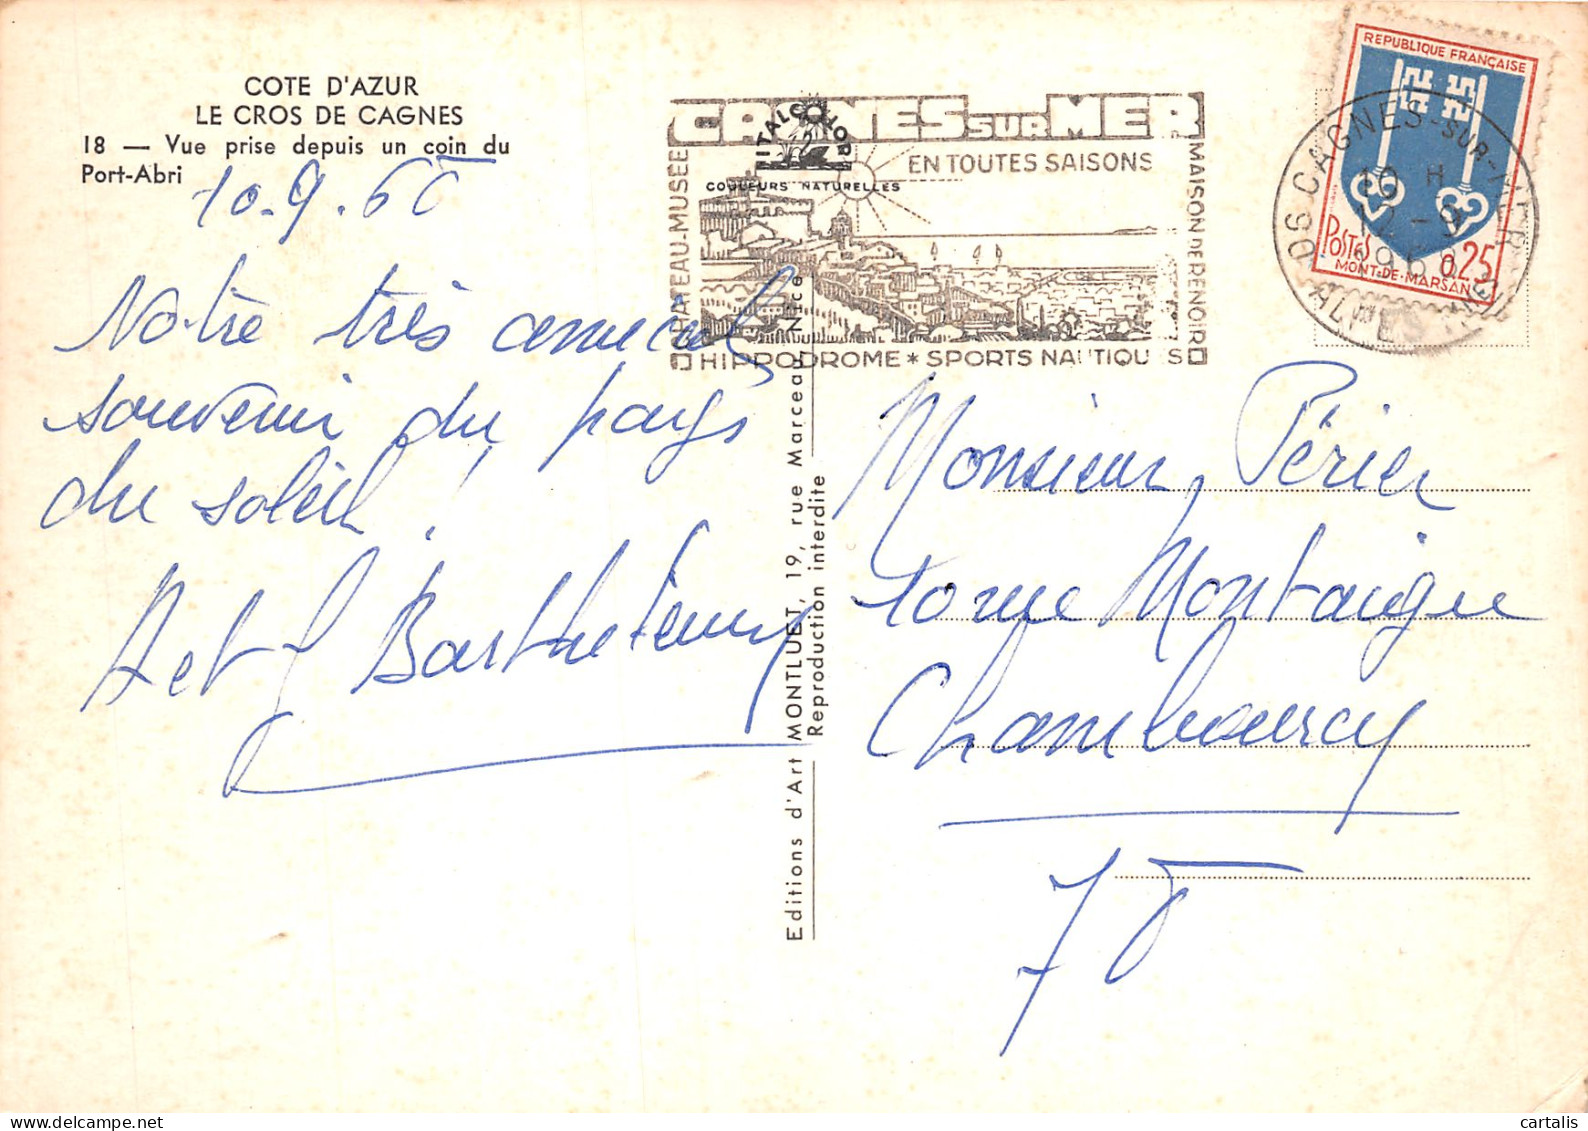 COTE D'AZUR
LE CROS DE CAGNES
18 — Vue prise depuis un coin du
Port-Abri
Notre très amical
souvenir du pays
du soleil !
A et J Barthélemy
Editions d'Art MONTLUET, 19, rue Marceau, Nice
Reproduction interdite
ITALCOLOR
COULEURS NATURELLES
CAGNES SUR MER
EN TOUTES SAISONS
CHATEAU-MUSEE
MAISON DE RENOIR
HIPPODROME * SPORTS NAUTIQUES
REPUBLIQUE FRANÇAISE
POSTES 0,25
MONT-DE-MARSAN
CAGNES-SUR-MER
10 H
12 - 9
ALPES
Monsieur Périer
rue Montaigne
Chambourcy
78
cartalis
delcampe.net